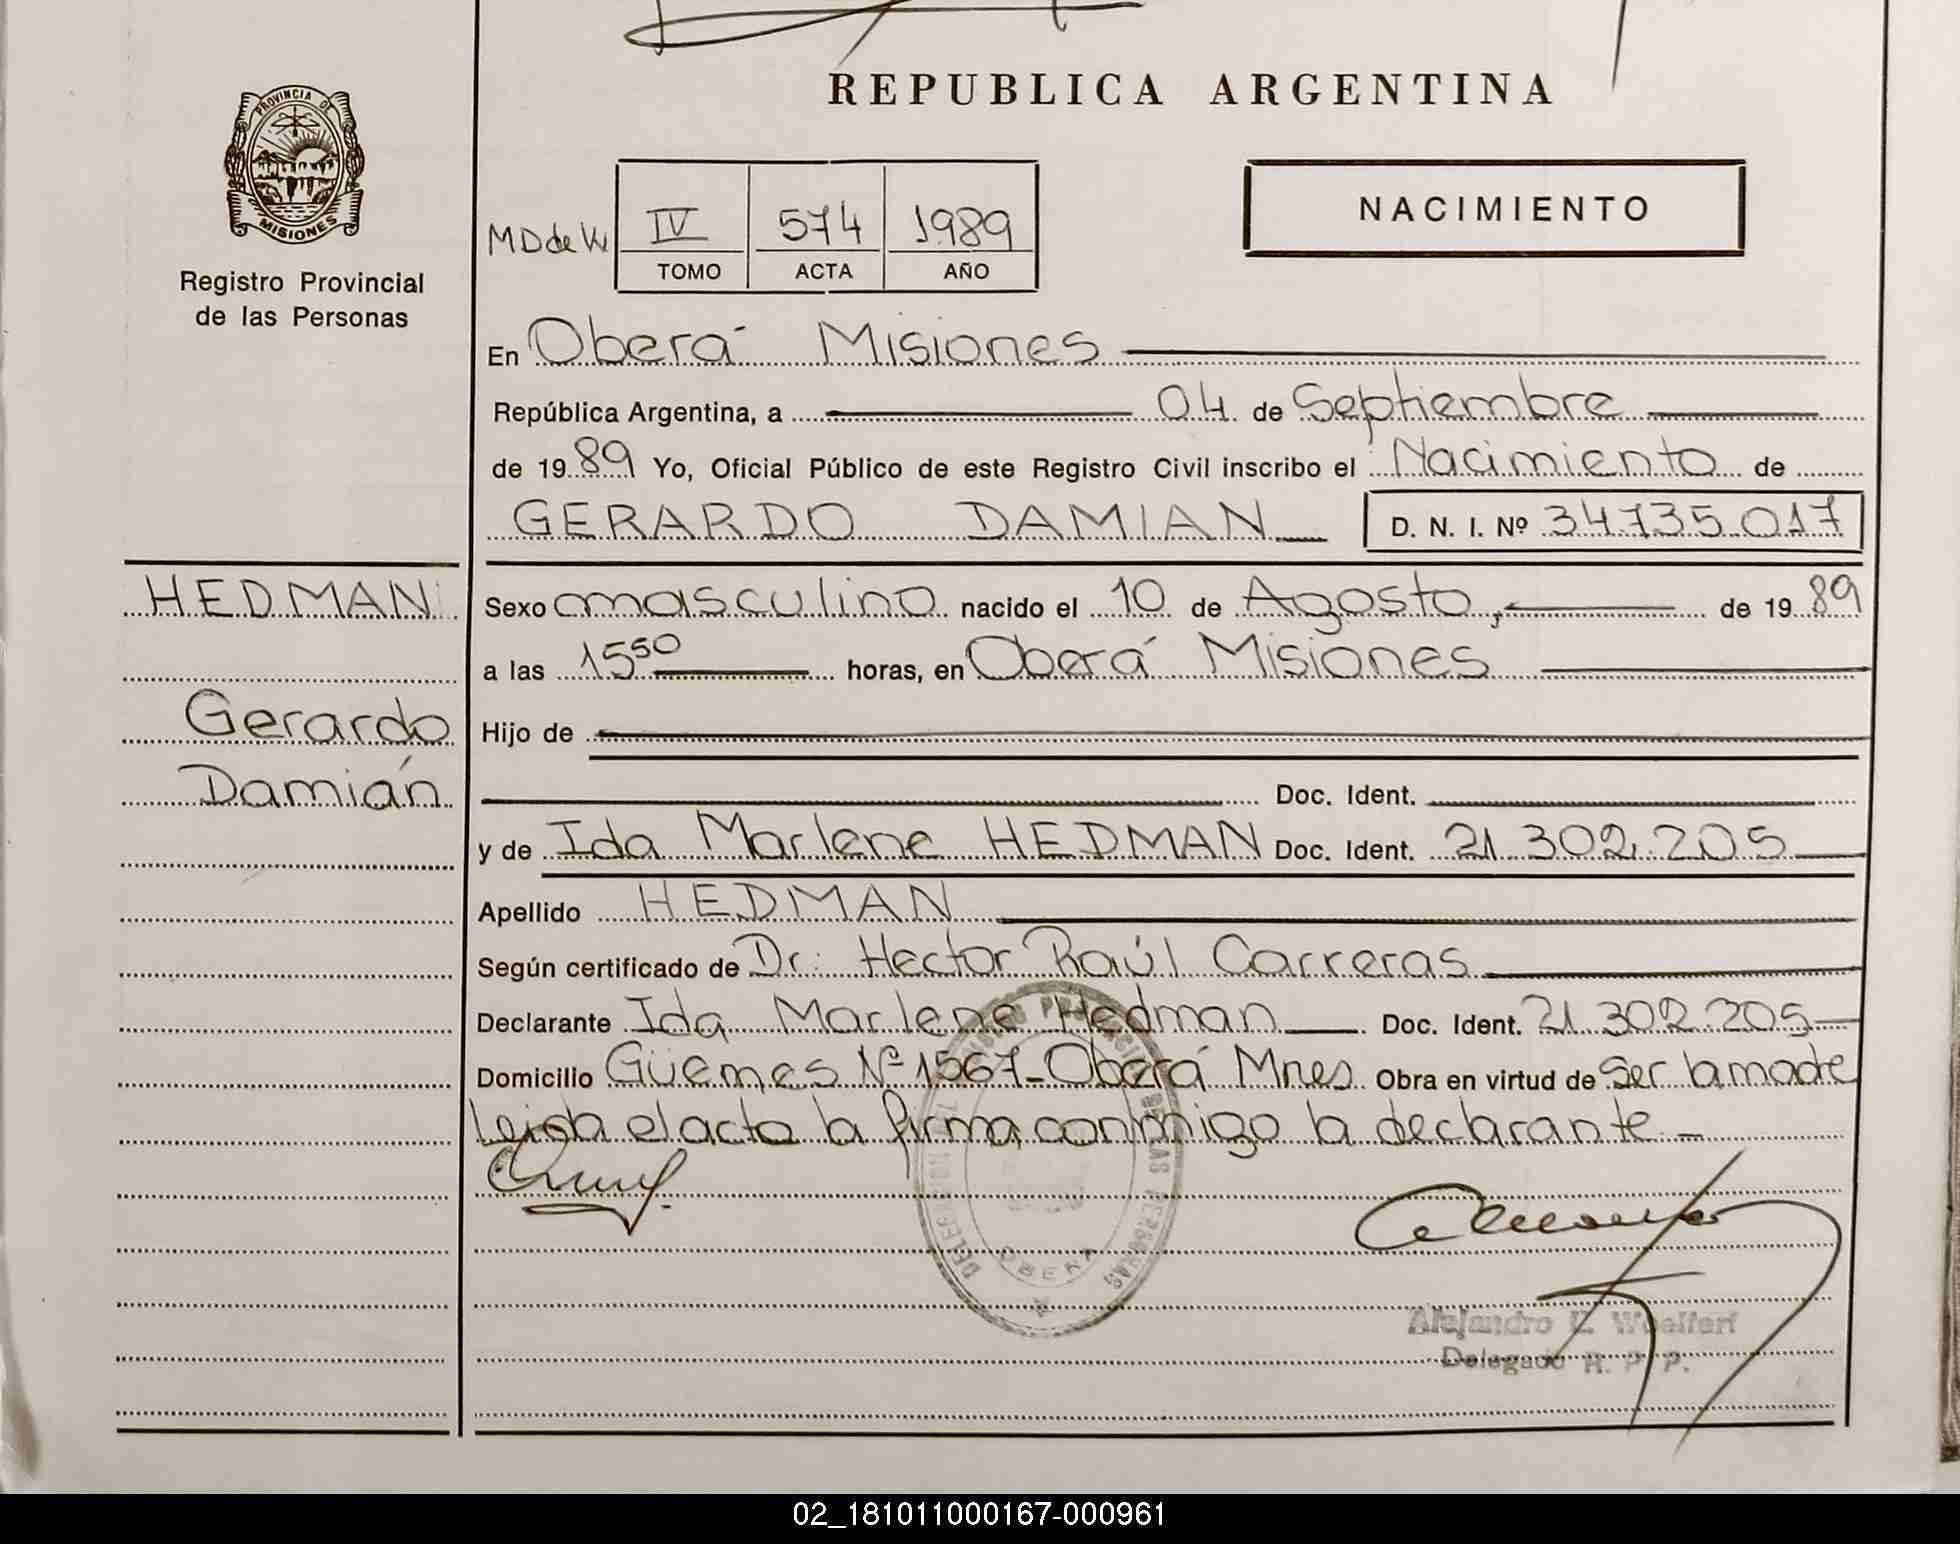 REPUBLICA ARGENTINA
PROVINCIA DE
MISIONES
Registro Provincial
de las Personas
NACIMIENTO
MD de W
IV 574 1989
TOMO ACTA AÑO
En Oberá Misiones
República Argentina, a 04 de Septiembre
de 1989 Yo, Oficial Público de este Registro Civil inscribo el Nacimiento de
GERARDO DAMIAN D. N. I. Nº 34.735.017
HEDMAN
Gerardo
Damián
Sexo masculino nacido el 10 de Agosto, de 1989
a las 15⁵⁰ horas, en Oberá Misiones
Hijo de
Doc. Ident.
y de Ida Marlene HEDMAN Doc. Ident. 21.302.205
Apellido HEDMAN
Según certificado de Dr: Hector Raúl Carreras
Declarante Ida Marlene Hedman Doc. Ident. 21.302.205
Domicilio Güemes Nº 1567-Oberá Mnes. Obra en virtud de Ser la madre
Leida el acta la firma conmigo la declarante.-
PERSONAS
OBERA
Alejandro E. Woelfert
Delegado R. P. P.
02_181011000167-000961